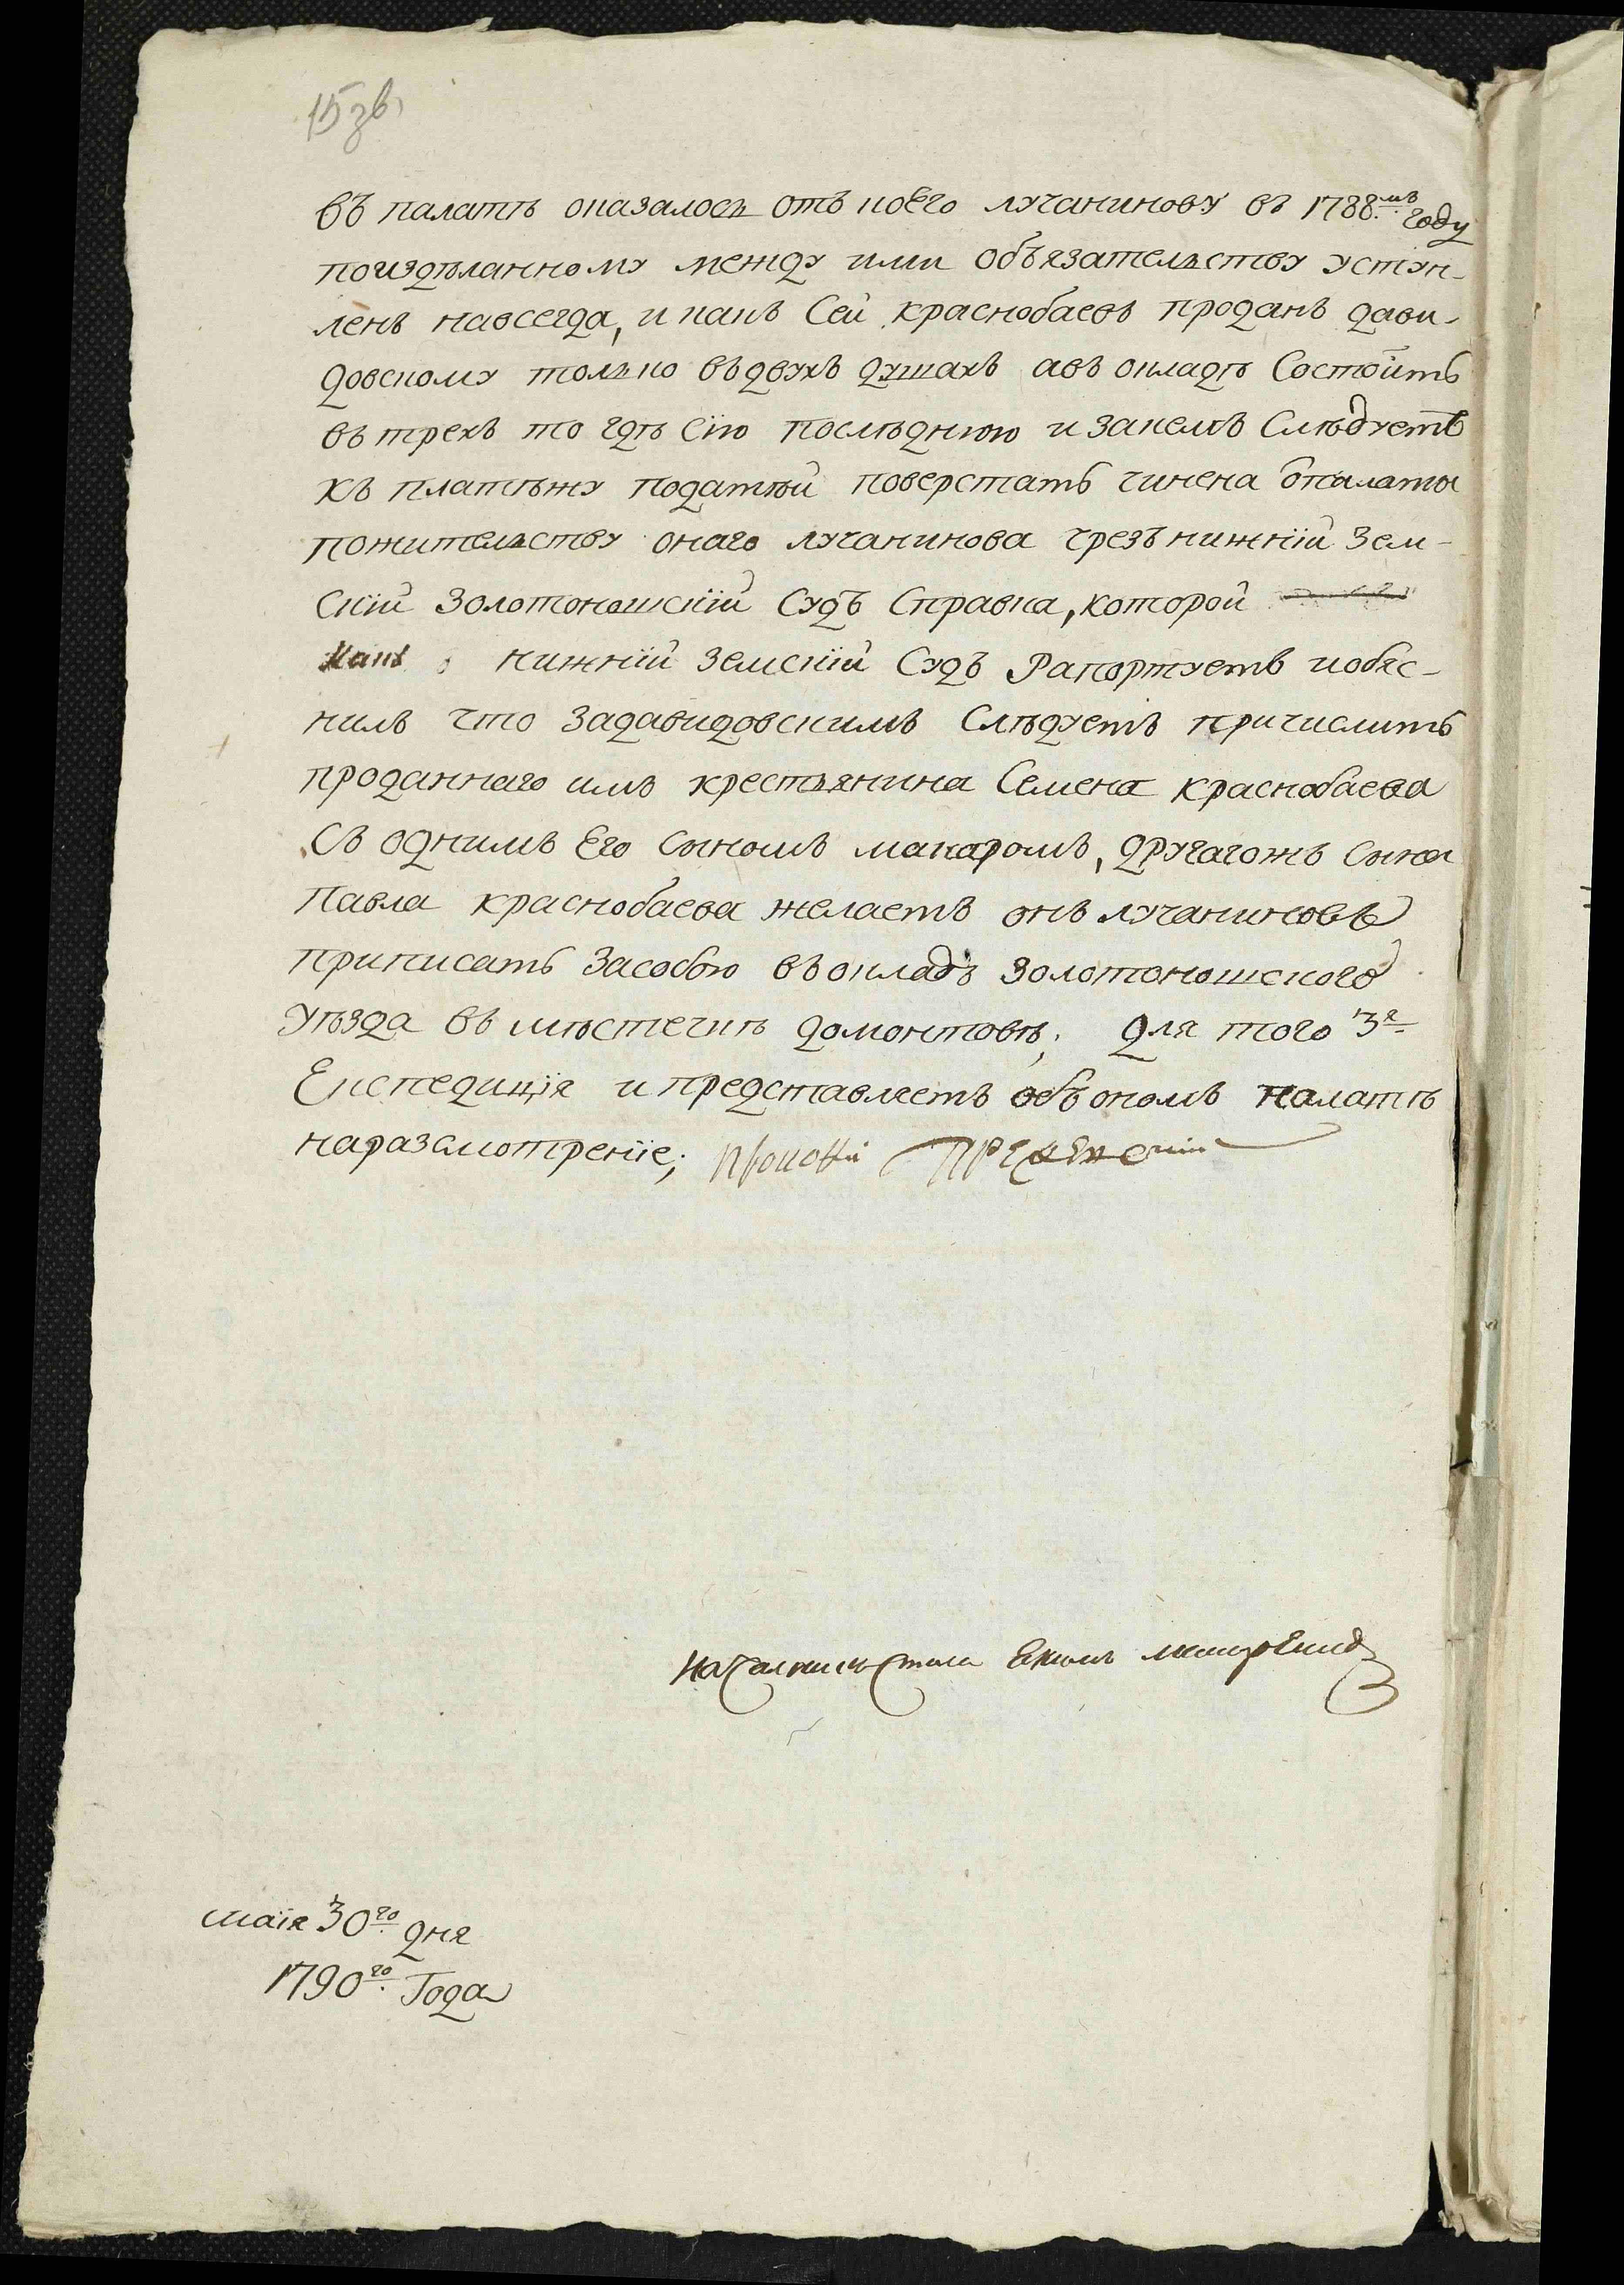 15 зв.
въ палатѣ оказалось отъ коего лучанинову въ 1788.мъ году
поиздѣланному между ими обьязательству уступ-
ленъ навсегда, и какъ Сей краснобаевъ проданъ дави-
довскому только въдвухъ душахъ авъ окладѣ Состоитъ
въ трехъ то гдѣ сію послѣднюю и закемъ Слѣдуетъ
къ платѣжу податѣй поверстать чинена опалаты
пожительству онаго лучанинова чрезъ нижній Зем-
скій Золотоношскій Судъ Справка, которой
нижній Земскій Судъ Рапортуетъ иобяс-
нилъ что задавидовскимъ Слѣдуетъ причислить
проданнаго имъ крестьянина Семена краснобаева
Съ однимъ Его сыномъ макаромъ, другагожъ сына
Павла краснобаева желаетъ онъ лучаниновъ
приписать Засобою въокладъ Золотоношского
уѣзда въ мѣстечкѣ домонтовѣ; для того 3я
Експедиція и представляетъ объ ономъ палатѣ
наразсмотреніе;
маія 30го дня
1790го Года